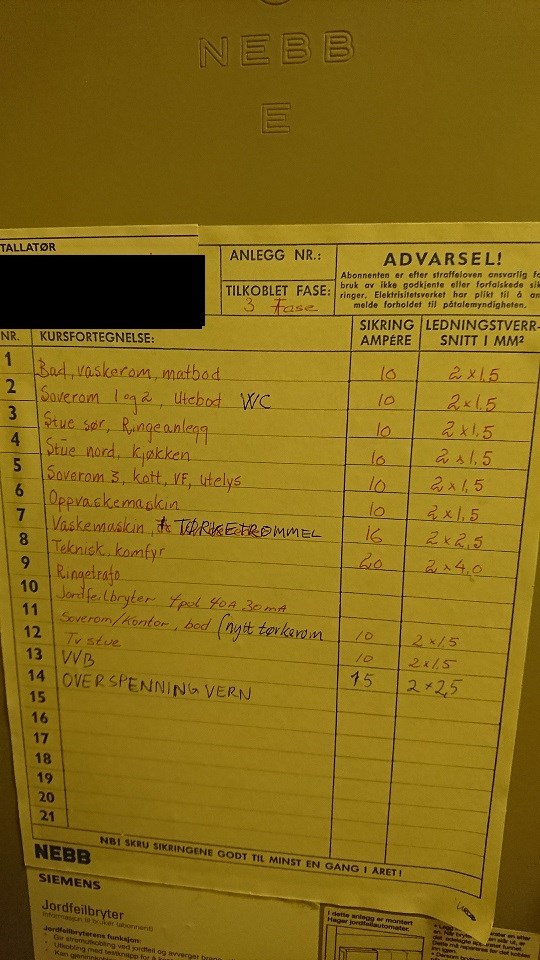 NEBB
E
TALLATØR
ANLEGG NR.:
TILKOBLET FASE:
3 Fase
ADVARSEL!
Abonnenten er efter straffeloven ansvarlig fo
bruk av ikke godkjente eller forfalskede sik
ringer. Elektrisitetsverket har plikt til å an
melde forholdet til påtalemyndigheten.
NR. KURSFORTEGNELSE: SIKRING AMPÉRE LEDNINGSTVERR- SNITT I MM²
1 Bad, vaskerom, matbod 10 2 x 1,5
2 Soverom 1 og 2, Utebod WC 10 2 x 1,5
3 Stue sør, Ringeanlegg 10 2 x 1,5
4 Stue nord, kjøkken 10 2 x 1,5
5 Soverom 3, kott, VF, utelys 10 2 x 1,5
6 Oppvaskemaskin 10 2 x 1,5
7 Vaskemaskin, + TØRKETROMMEL 16 2 x 2,5
8 Teknisk. komfyr 20 2 x 4,0
9 Ringetrafo
10 Jordfeilbryter 4pol 40A 30mA
11 Soverom/Kontor, bod (nytt tørkerom 10 2 x 1,5
12 Tv stue 10 2 x 1,5
13 VVB 15 2 x 2,5
14 OVERSPENNINGVERN
15
16
17
18
19
20
21
NB! SKRU SIKRINGENE GODT TIL MINST EN GANG I ÅRET!
NEBB
SIEMENS
Jordfeilbryter
Informasjon til bruker (abonnent)
Jordfeilbryterens funksjon:
I dette anlegg er montert
Hager jordfeilautomater.